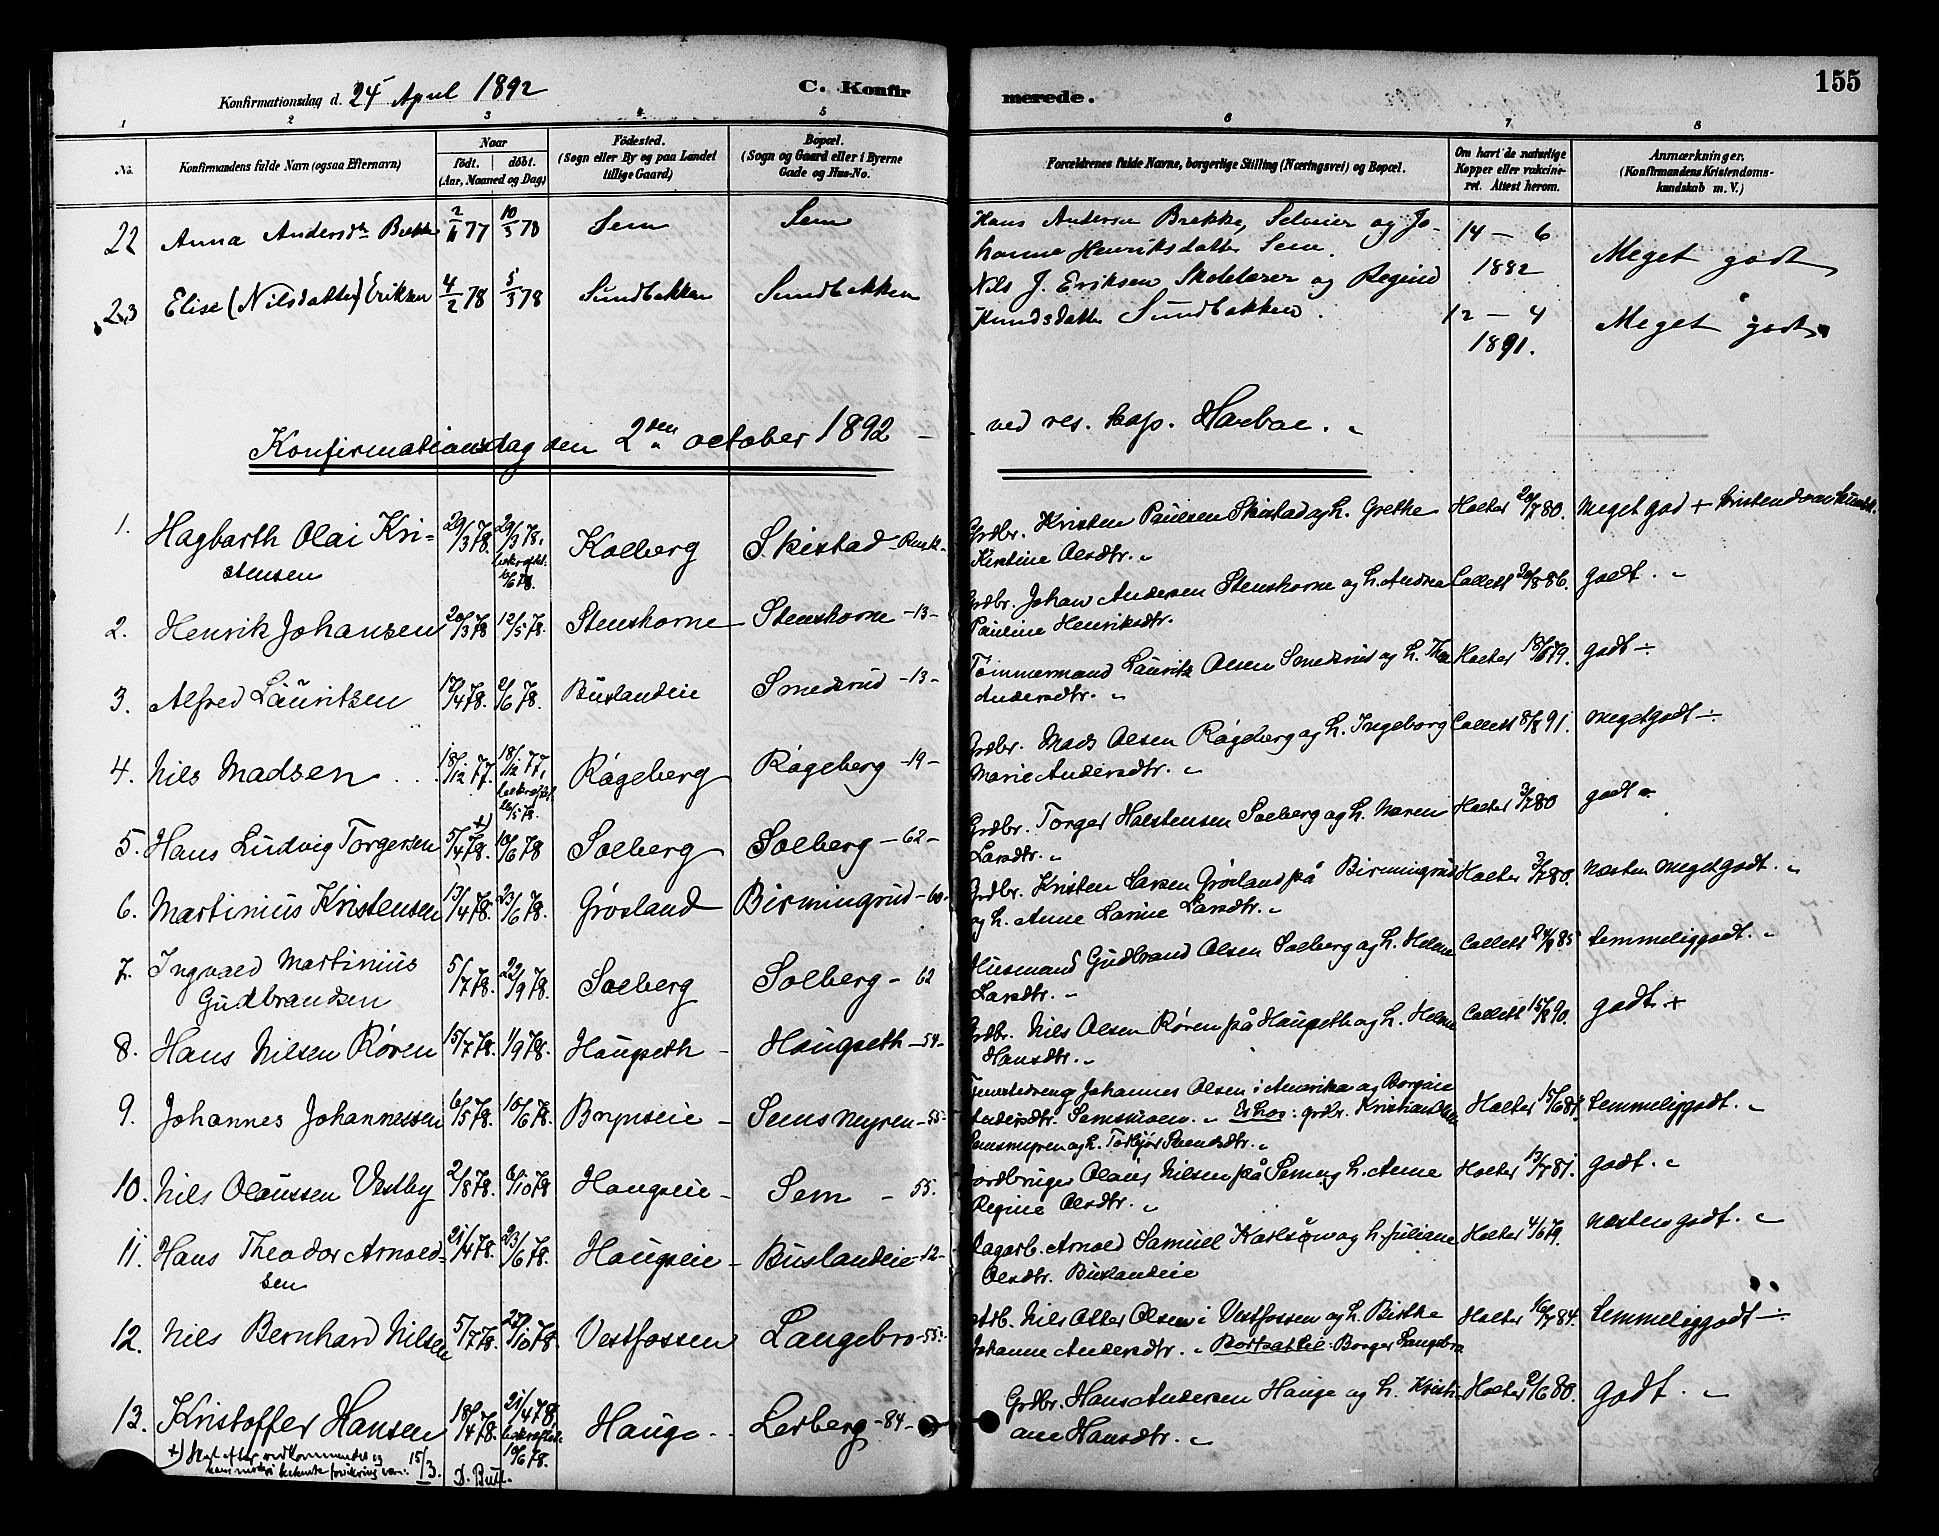 155
Konfirmationsdag d. 24 April 1892 C. Konfirmerede.
1 2 3 4 5 6 7 8
No. Konfirmandens fulde Navn (ogsaa Efternavn) Naar født. døbt. (Aar, Maaned og Dag) Fødested. (Sogn eller By og paa Landet tillige Gaard) Bopæl. (Sogn og Gaard eller i Byerne Gade og Hus-No. Forældrenes fulde Navne, borgerlige Stilling (Næringsvei) og Bopæl. Om havt de naturlige Kopper eller vaccineret. Attest herom. Anmærkninger. (Konfirmandens Kristendomskundskab m. V.)
22 Anna Andersdtr Brekke 2/11 77 10/3 78 Sem Sem Hans Andersen Brekke, Selveier og Jo-
hanne Henriksdatter Sem. 14 – 6 1882 Meget godt
23 Elise (Nilsdatter) Eriksen 4/2 78 5/3 78 Sundbakken Sundbakken Nils J. Eriksen Skolelærer og Regine
Knudsdatter Sundbakken. 12 – 4 1891. Meget godt
Konfirmationsdag den 2den october 1892 – ved res. kap.
1. Hagbarth Olai Kri-
stensen 29/3 78. 29/3 78. bekræftet Kolberg Skistad Grdbr. Kristen Paulsen Skistad og h. Grethe
Kirstine Olsdtr. Holter 20/7 80. meget god + kristendomskundsk.
2. Henrik Johansen 20/3 78 12/5 78. Stenshorne Stenshorne – 13 – Grdbr. Johan Andersen Stenshorne og h. Andrea
Pauline Henriksdtr. Collett 20/8 86. godt.
3. Alfred Lauritsen 17/4 78. 2/6 78. Buslandeie Smedsrud – 13 – Tømmermand Lauritz Olsen Smedsrud og h.
Andersdtr. Holter 18/6 79. godt ÷
4. Nils Madsen 18/12 77. 18/12 77. bekræftet 26/5 78. Røgeberg Røgeberg – 19 – Grdbr. Mads Olsen Røgeberg og h. Ingeborg
Marie Andersdtr. Collett 8/8 91. meget godt ÷
5. Hans Ludvig Torgersen +) 5/4 78. 10/6 78 Solberg Solberg – 62 – Grdbr. Torger Halstensen Solberg og h. Maren
Larsdtr. Holter 3/7 80 godt
6. Martinius Kristensen 13/4 78. 23/6 78. Grøsland Birmingrud – 60 – Grdbr. Kristen Larsen Grøsland på Birmingrud
og h. Anne Larine Larsdtr. Holter 3/7 80. næsten meget godt.
7. Ingvald Martinius
Gudbrandsen 5/7 78. 22/9 78. Solberg Solberg – 62 Husmand Gudbrand Olsen Solberg og h. Helene
Larsdtr. Collett 24/9 85 temmelig godt.
8. Hans Nilsen Røren 15/7 78. 1/9 78. Haugseth – Haugseth – 54 – Grdbr. Nils Olsen Røren på Haugseth og h. Helene
Hansdtr. Collett 15/8 90. godt +
9. Johannes Johannessen 6/5 78. 10/6 78. – Semsmyren – 55 – Tjenestedreng Johannes Olsen i Amerika og
Andersdtr. Semsmoen. Er hos: grdbr. Kristian
Semsmyren og h. Torbjør Svendsdtr. Holter temmelig godt.
10. Nils Olaussen Vestby 2/8 78. 6/10 78 Haugseie – Sem – 55. Jordbruger Olaus Nilsen på Sem og h. Anne
Regine Olsdtr. Holter 13/7 81. godt.
11. Hans Theodor Arnold-
sen 21/4 78. 23/6 78. Haugseie – Buslandeie – 12 – Dagarb. Arnold Samuel Karlsson og h. Juliane
Olsdtr. Buslandeie Holter 4/6 79. næsten godt.
12. Nils Bernhard Nilsen 5/7 78. 27/10 78. Vestfossen Langebro – 55 – Arb. Nils Otter Olsen i Vestfossen og h. Birthe
Johanne Andersdtr. Bortsat til: Borger Langebro Holter 16/7 84. temmelig godt ÷
13. Kristoffer Hansen 18/4 78. 21/4 78 bekræftet 10/6 78. Hauge – Lerberg – 84 – Grdbr. Hans Andersen Hauge og h. Kristi-
ane Hansdtr. Holter 2/6 80. godt.
+) Skal efter vedkommendes og
hans moders bestemte forsikring være 15/3. D. Butt.